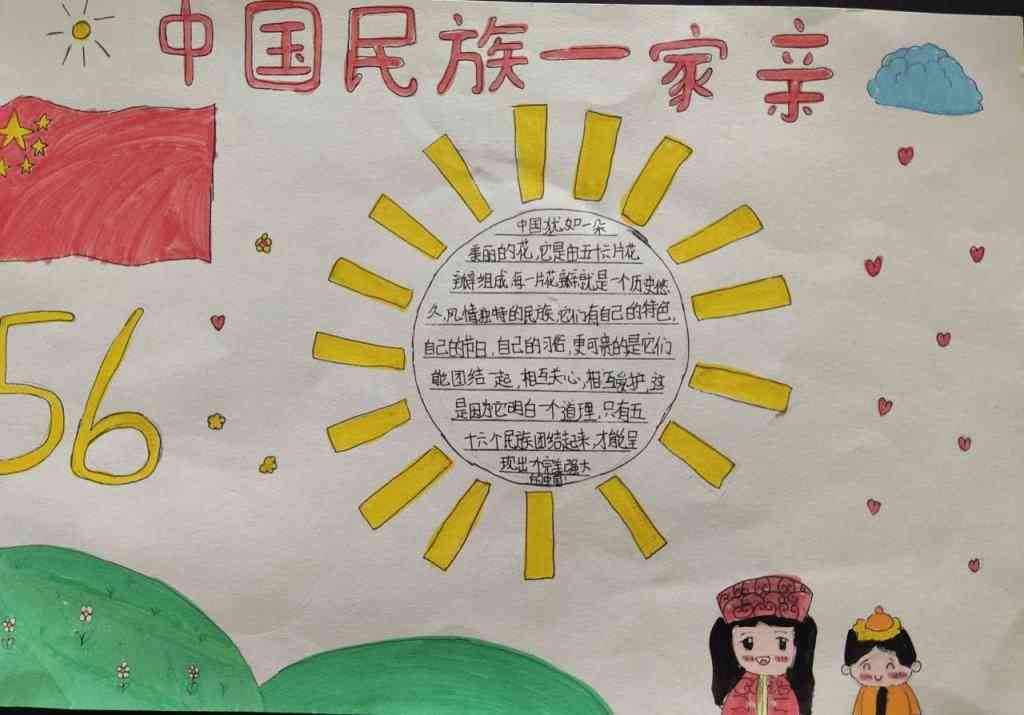 中国民族一家亲
56
中国犹如一朵
美丽的花,它是由五十六片花
瓣组成,每一片花瓣就是一个历史悠
久,风情独特的民族,它们有自己的特色,
自己的节日,自己的习俗,更可贵的是它们
能团结一起,相互关心,相互爱护,这
是因为它明白一个道理,只有五
十六个民族团结起来,才能呈
现出一个完美强大
的中国!